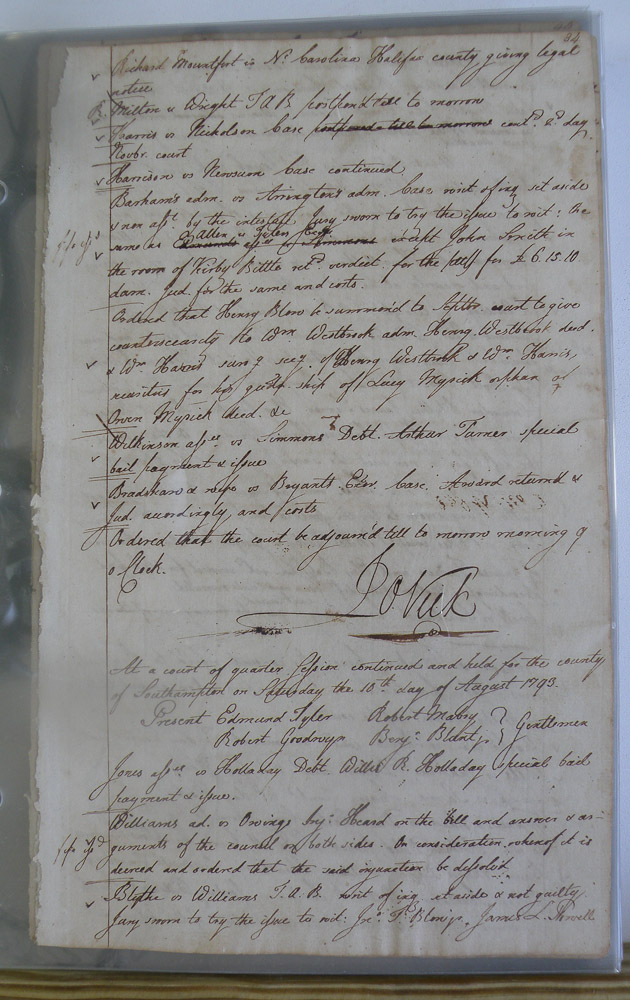 Richard Mountfort in No. Carolina Halifax county giving legal
notice
Milton v Wright T A B postpond till to morrow
Harris vs Nicholson Case postpond till to morrow contd. 2d. day
Novbr. court
Harrison vs Newsum Case continued
Barham's adm. vs Arrington's adm. Case writ of inq set aside
& non asst. by the intestate Jury sworn to try the issue to wit: the
Allen v
same as assee of Simmons except John Smith in
the room of Kirby Bittle retd. verdict for the pltff for £ 6.15.10
dam. Jud. for the same and costs.
Ordered that Henry Blow be summon'd to Septbr. court to give
countersecurity to Wm. Westbrook adm. Henry Westbrook deced.
& Wm. Harris surv'g secy. of Henry Westbrook & Wm. Harris,
securitys for his guda. ship of Lucy Mysick orphan of
Owen Mysick deced. &c
Wilkinson assee vs Simmons Debt. Arthur Turner special
bail payment & issue
Bradshaw & wife vs Bryants Exor. Case. Award returned &
Jud. accordingly, and costs
Ordered that the court be adjourn'd till to morrow morning 9
o Clock.
At a court of quarter Session continued and held for the county
of Southampton on Saturday the 10th day of August 1793.
Present Edmund Tyler Robert Mabry
Robert Goodwyn Benja. Blunt Gentlemen
Jones assee vs Holladay Debt Willis R. Holladay special bail
payment & issue.
Williams ad. vs Owings Inj. Heard on the bill and answer & ar-
guments of the counsel on both sides. On consideration whereof it is
decreed and ordered that the said injunction be dissolv'd
Blythe vs Williams T. A. B. writ of inq. set aside & not guilty
Jury sworn to try the issue to wit: Jno. T. Blow, James L.